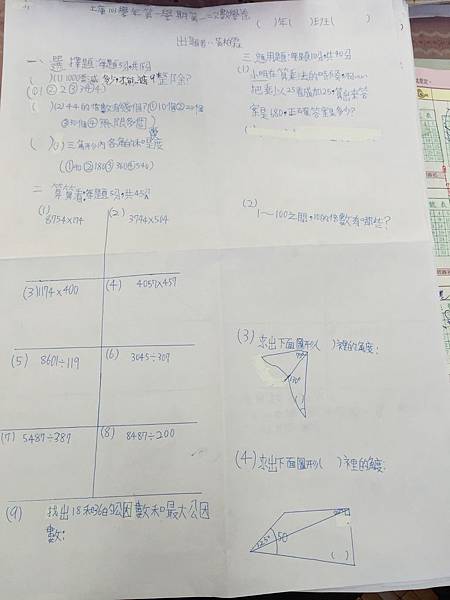 上海四學年第一學期第二次數學卷
( )年( )班( )
出題者:
一、選擇題:每題5分,共15分
( )(1)1000要減多少,才可以被9整除?
(①1②2③3④4)
( )(2)44的倍數有幾個?①10個②24個
③30個④無限多個
( )(3)三角形內各角的和是幾度
(①90②180③360④540)
二、算算看:每題5分,共45分
(1)
8754×174
(2)
3794×564
(3)1174×400
(4) 4057×457
(5) 8601÷119
(6) 3045÷309
(7) 5487÷387
(8) 8487÷200
(9) 找出18和36的公因數和最大公因
數:
三、應用題:每題10分,共40分
(1)
小明在算
把乘小人25看成加25,算出來答
案是180,正確答案是多少?
(2)
1~100之間,10的倍數有哪些?
(3) 求出下面圖形( )裡的角度:
130°
( )
(4)求出下面圖形( )裡的角度:
125°
50
( )